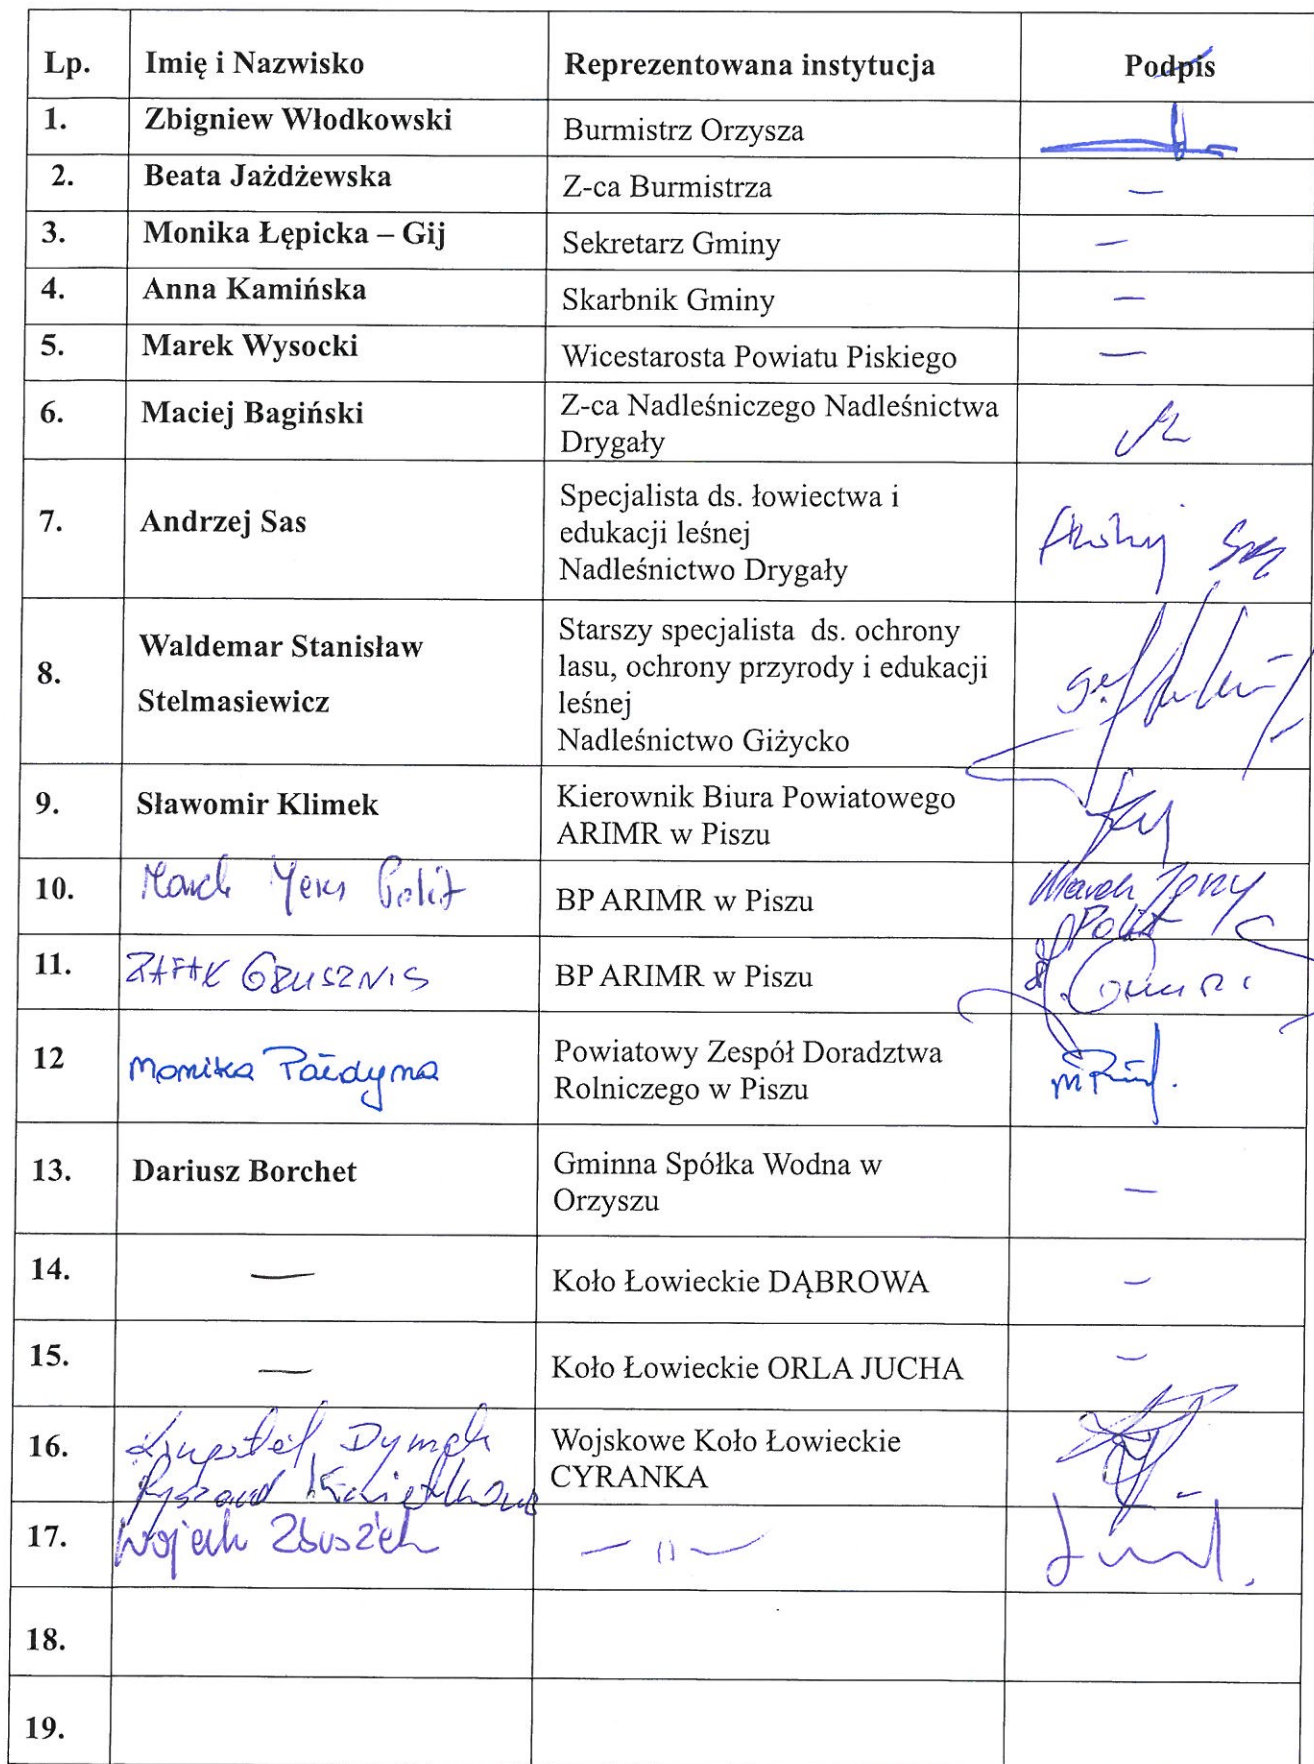 Lp. Imię i Nazwisko Reprezentowana instytucja Podpis
1. Zbigniew Włodkowski Burmistrz Orzysza
2. Beata Jażdżewska Z-ca Burmistrza –
3. Monika Łępicka – Gij Sekretarz Gminy –
4. Anna Kamińska Skarbnik Gminy –
5. Marek Wysocki Wicestarosta Powiatu Piskiego –
6. Maciej Bagiński Z-ca Nadleśniczego Nadleśnictwa
Drygały
7. Andrzej Sas Specjalista ds. łowiectwa i
edukacji leśnej
Nadleśnictwo Drygały
8. Waldemar Stanisław
Stelmasiewicz
Starszy specjalista ds. ochrony
lasu, ochrony przyrody i edukacji
leśnej
Nadleśnictwo Giżycko
9. Sławomir Klimek Kierownik Biura Powiatowego
ARIMR w Piszu
10. BP ARIMR w Piszu Marek Jerzy
Polit
11. BP ARIMR w Piszu
12 Monika Powiatowy Zespół Doradztwa
Rolniczego w Piszu
13. Dariusz Borchet Gminna Spółka Wodna w
Orzyszu –
14. — Koło Łowieckie DĄBROWA –
15. — Koło Łowieckie ORLA JUCHA –
16. Wojskowe Koło Łowieckie
CYRANKA
17. — 11 —
18.
19.